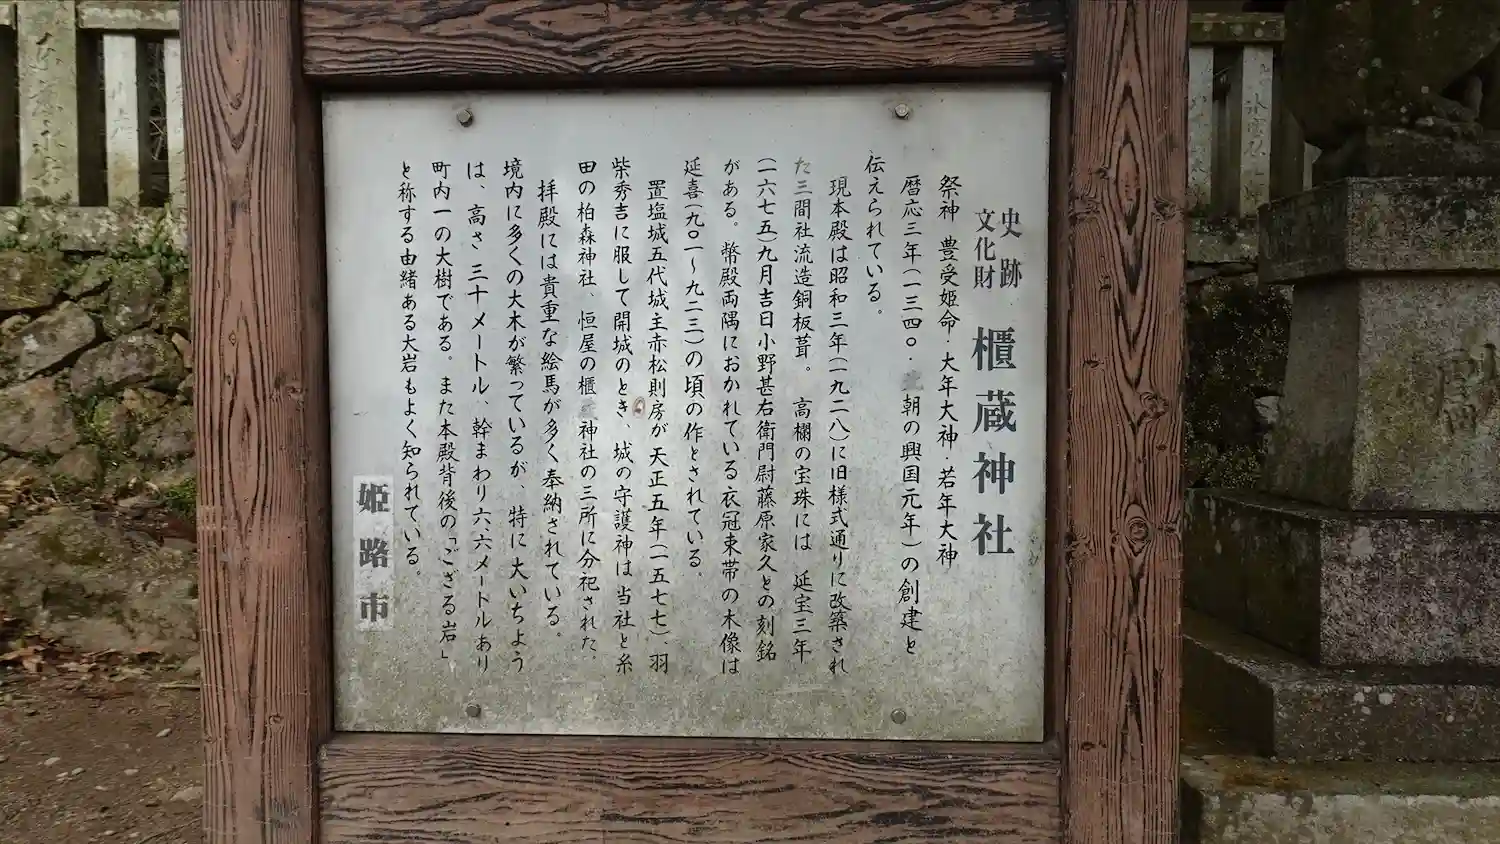 史跡
文化財
櫃蔵神社
祭神 豊受姫命・大年大神・若年大神
暦応三年(一三四〇・ 朝の興国元年)の創建と
伝えられている。
現本殿は昭和三年(一九二八)に旧様式通りに改築され
た三間社流造銅板葺。高欄の宝珠には 延宝三年
(一六七五)九月吉日小野甚右衛門尉藤原家久との刻銘
がある。幣殿両隅におかれている衣冠束帯の木像は
延喜(九〇一〜九二三)の頃の作とされている。
置塩城五代城主赤松則房が天正五年(一五七七)、羽
柴秀吉に服して開城のとき、城の守護神は当社と糸
田の柏森神社、恒屋の櫃 神社の三所に分祀された。
拝殿には貴重な絵馬が多く奉納されている。
境内に多くの大木が繁っているが、特に大いちよう
は、高さ三十メートル、幹まわり六・六メートルあり
町内一の大樹である。また本殿背後の「ござる岩」
と称する由緒ある大岩もよく知られている。
姫路市